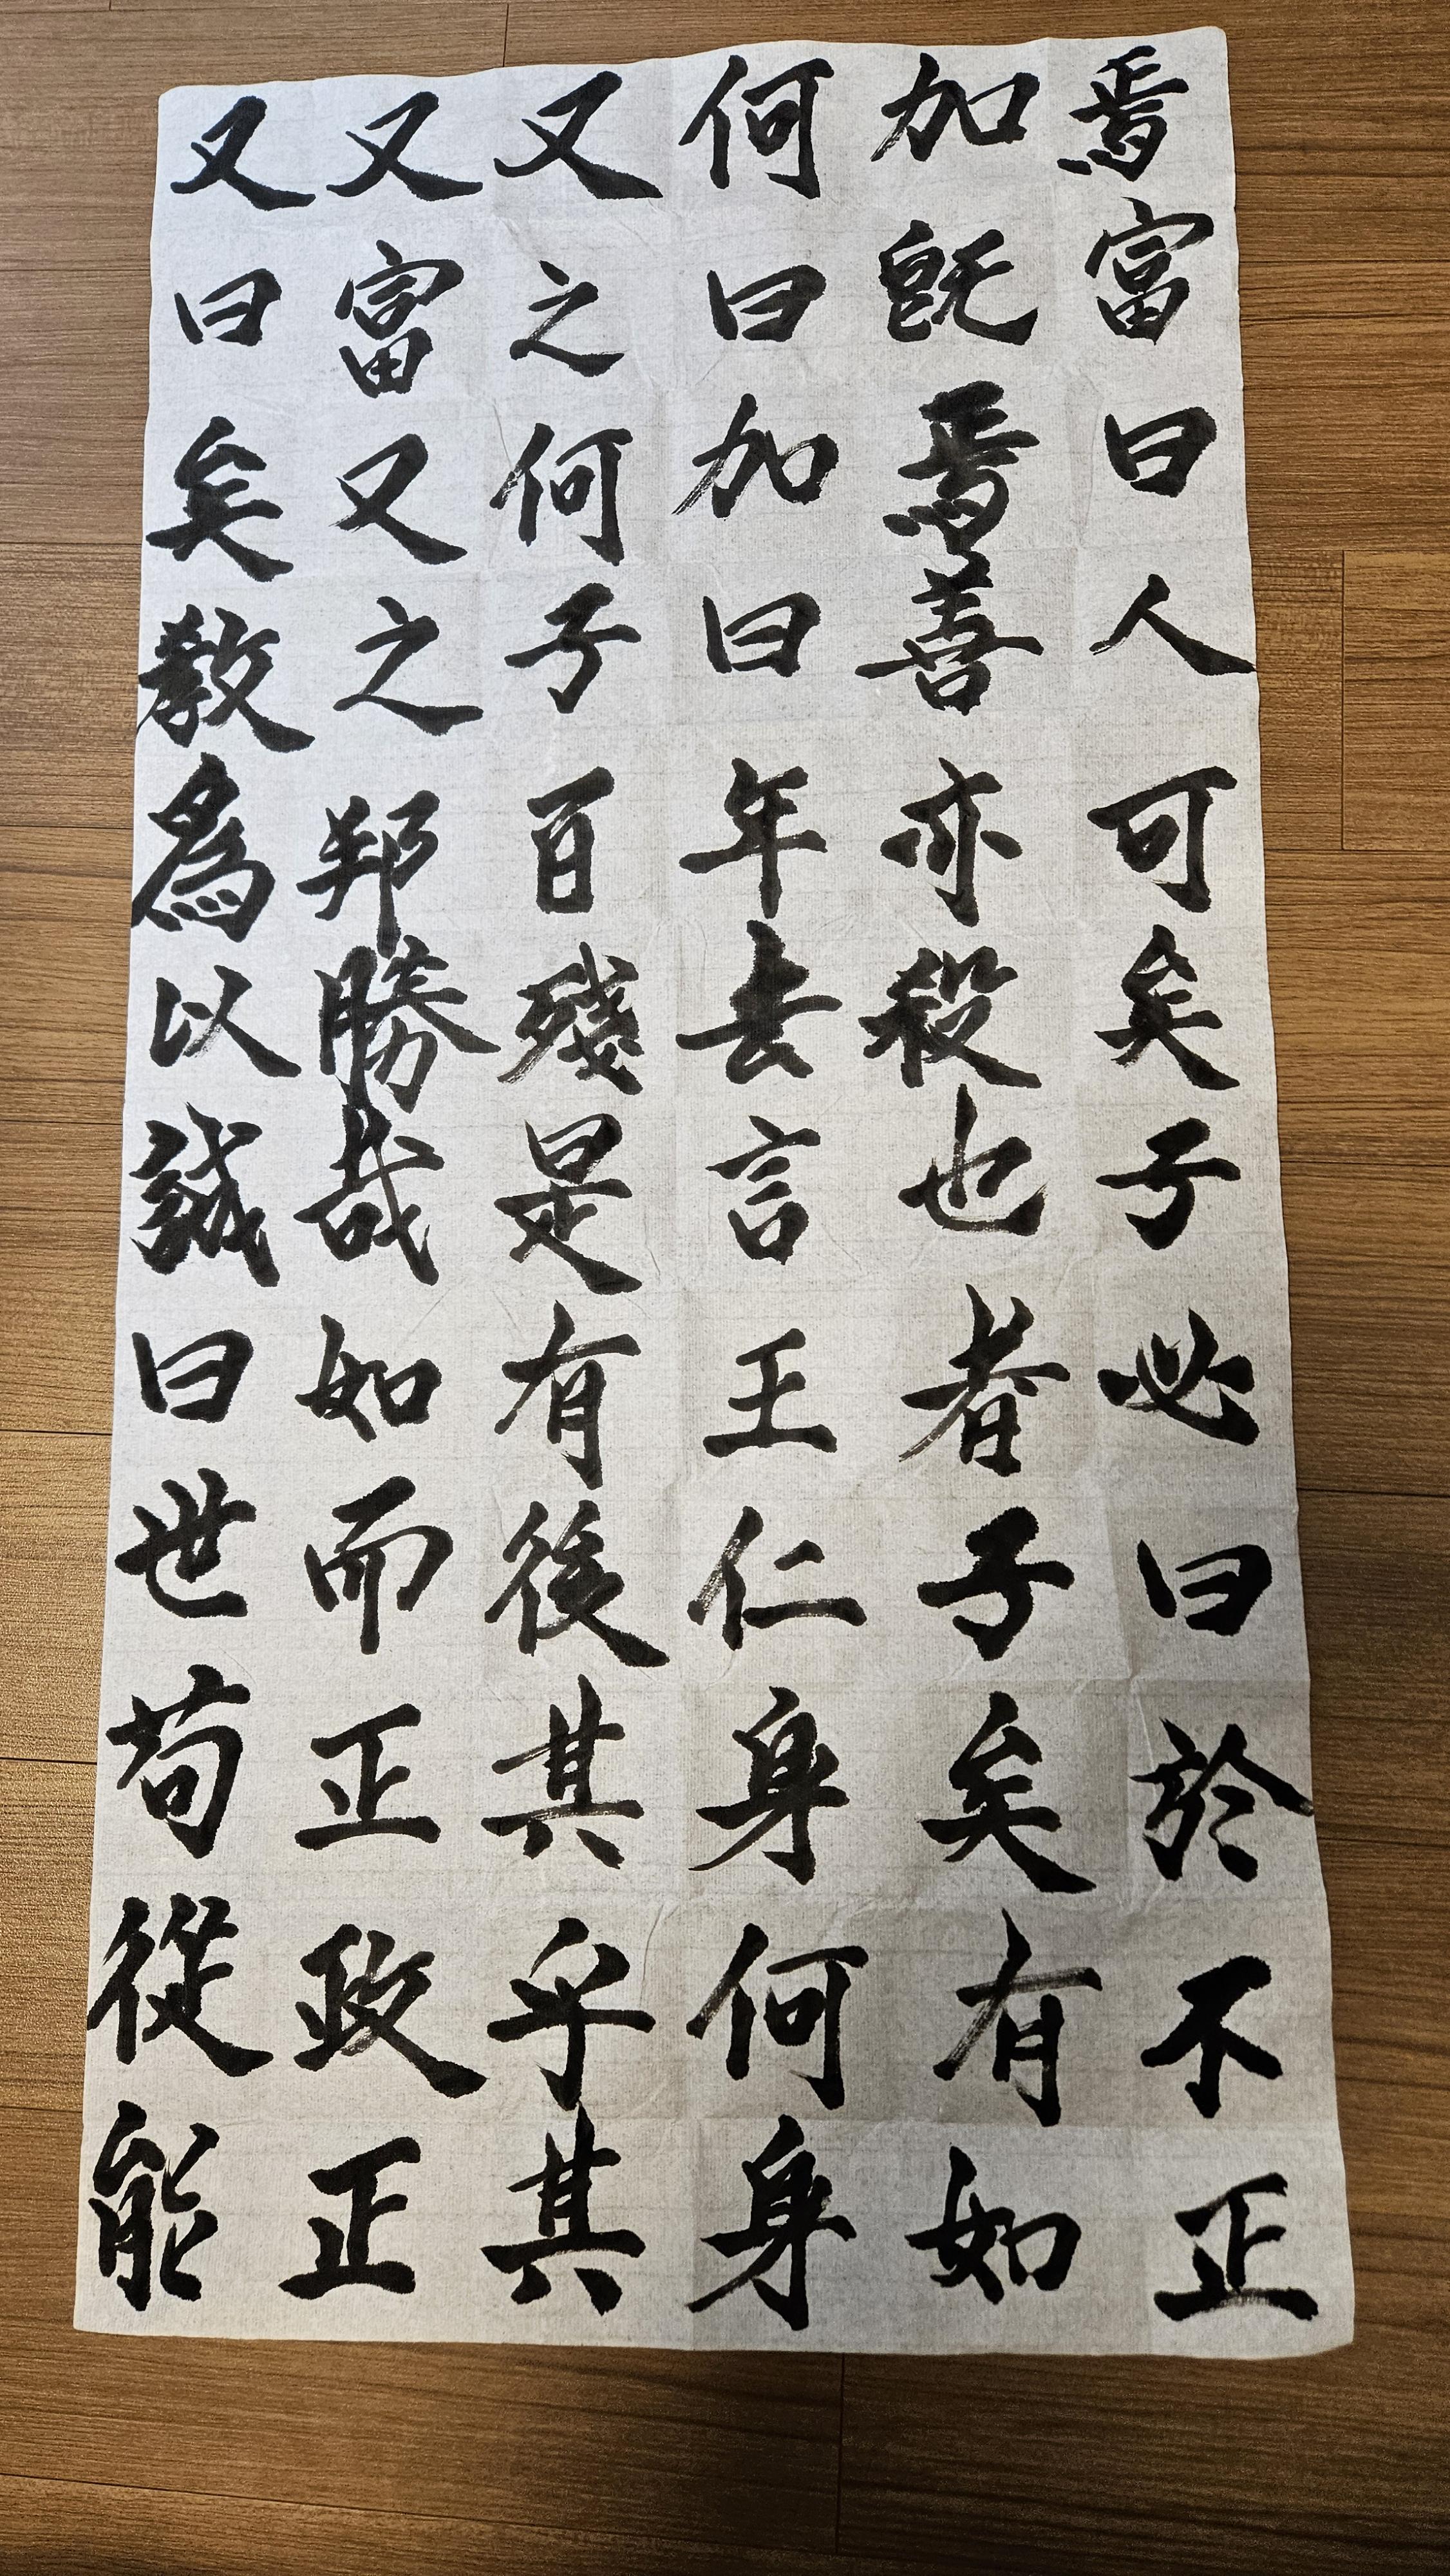 又又又何加焉
曰富之曰旣富
矣又何加焉曰
敎之子曰善人
爲邦百年亦可
以勝殘去殺矣
誠哉是言也子
曰如有王者必
世而後仁子曰
苟正其身矣於
從政乎何有不
能正其身如正